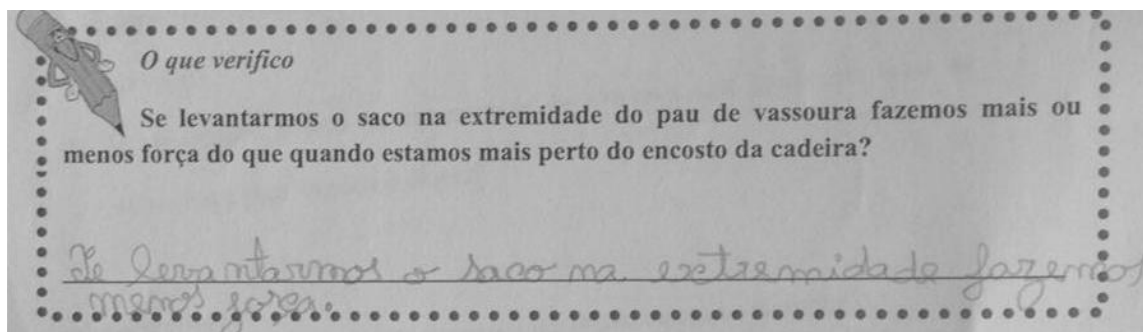 O que verifico
Se levantarmos o saco na extremidade do pau de vassoura fazemos mais ou
menos força do que quando estamos mais perto do encosto da cadeira?
Se levantarmos o saco na extremidade fazemos
menos força.